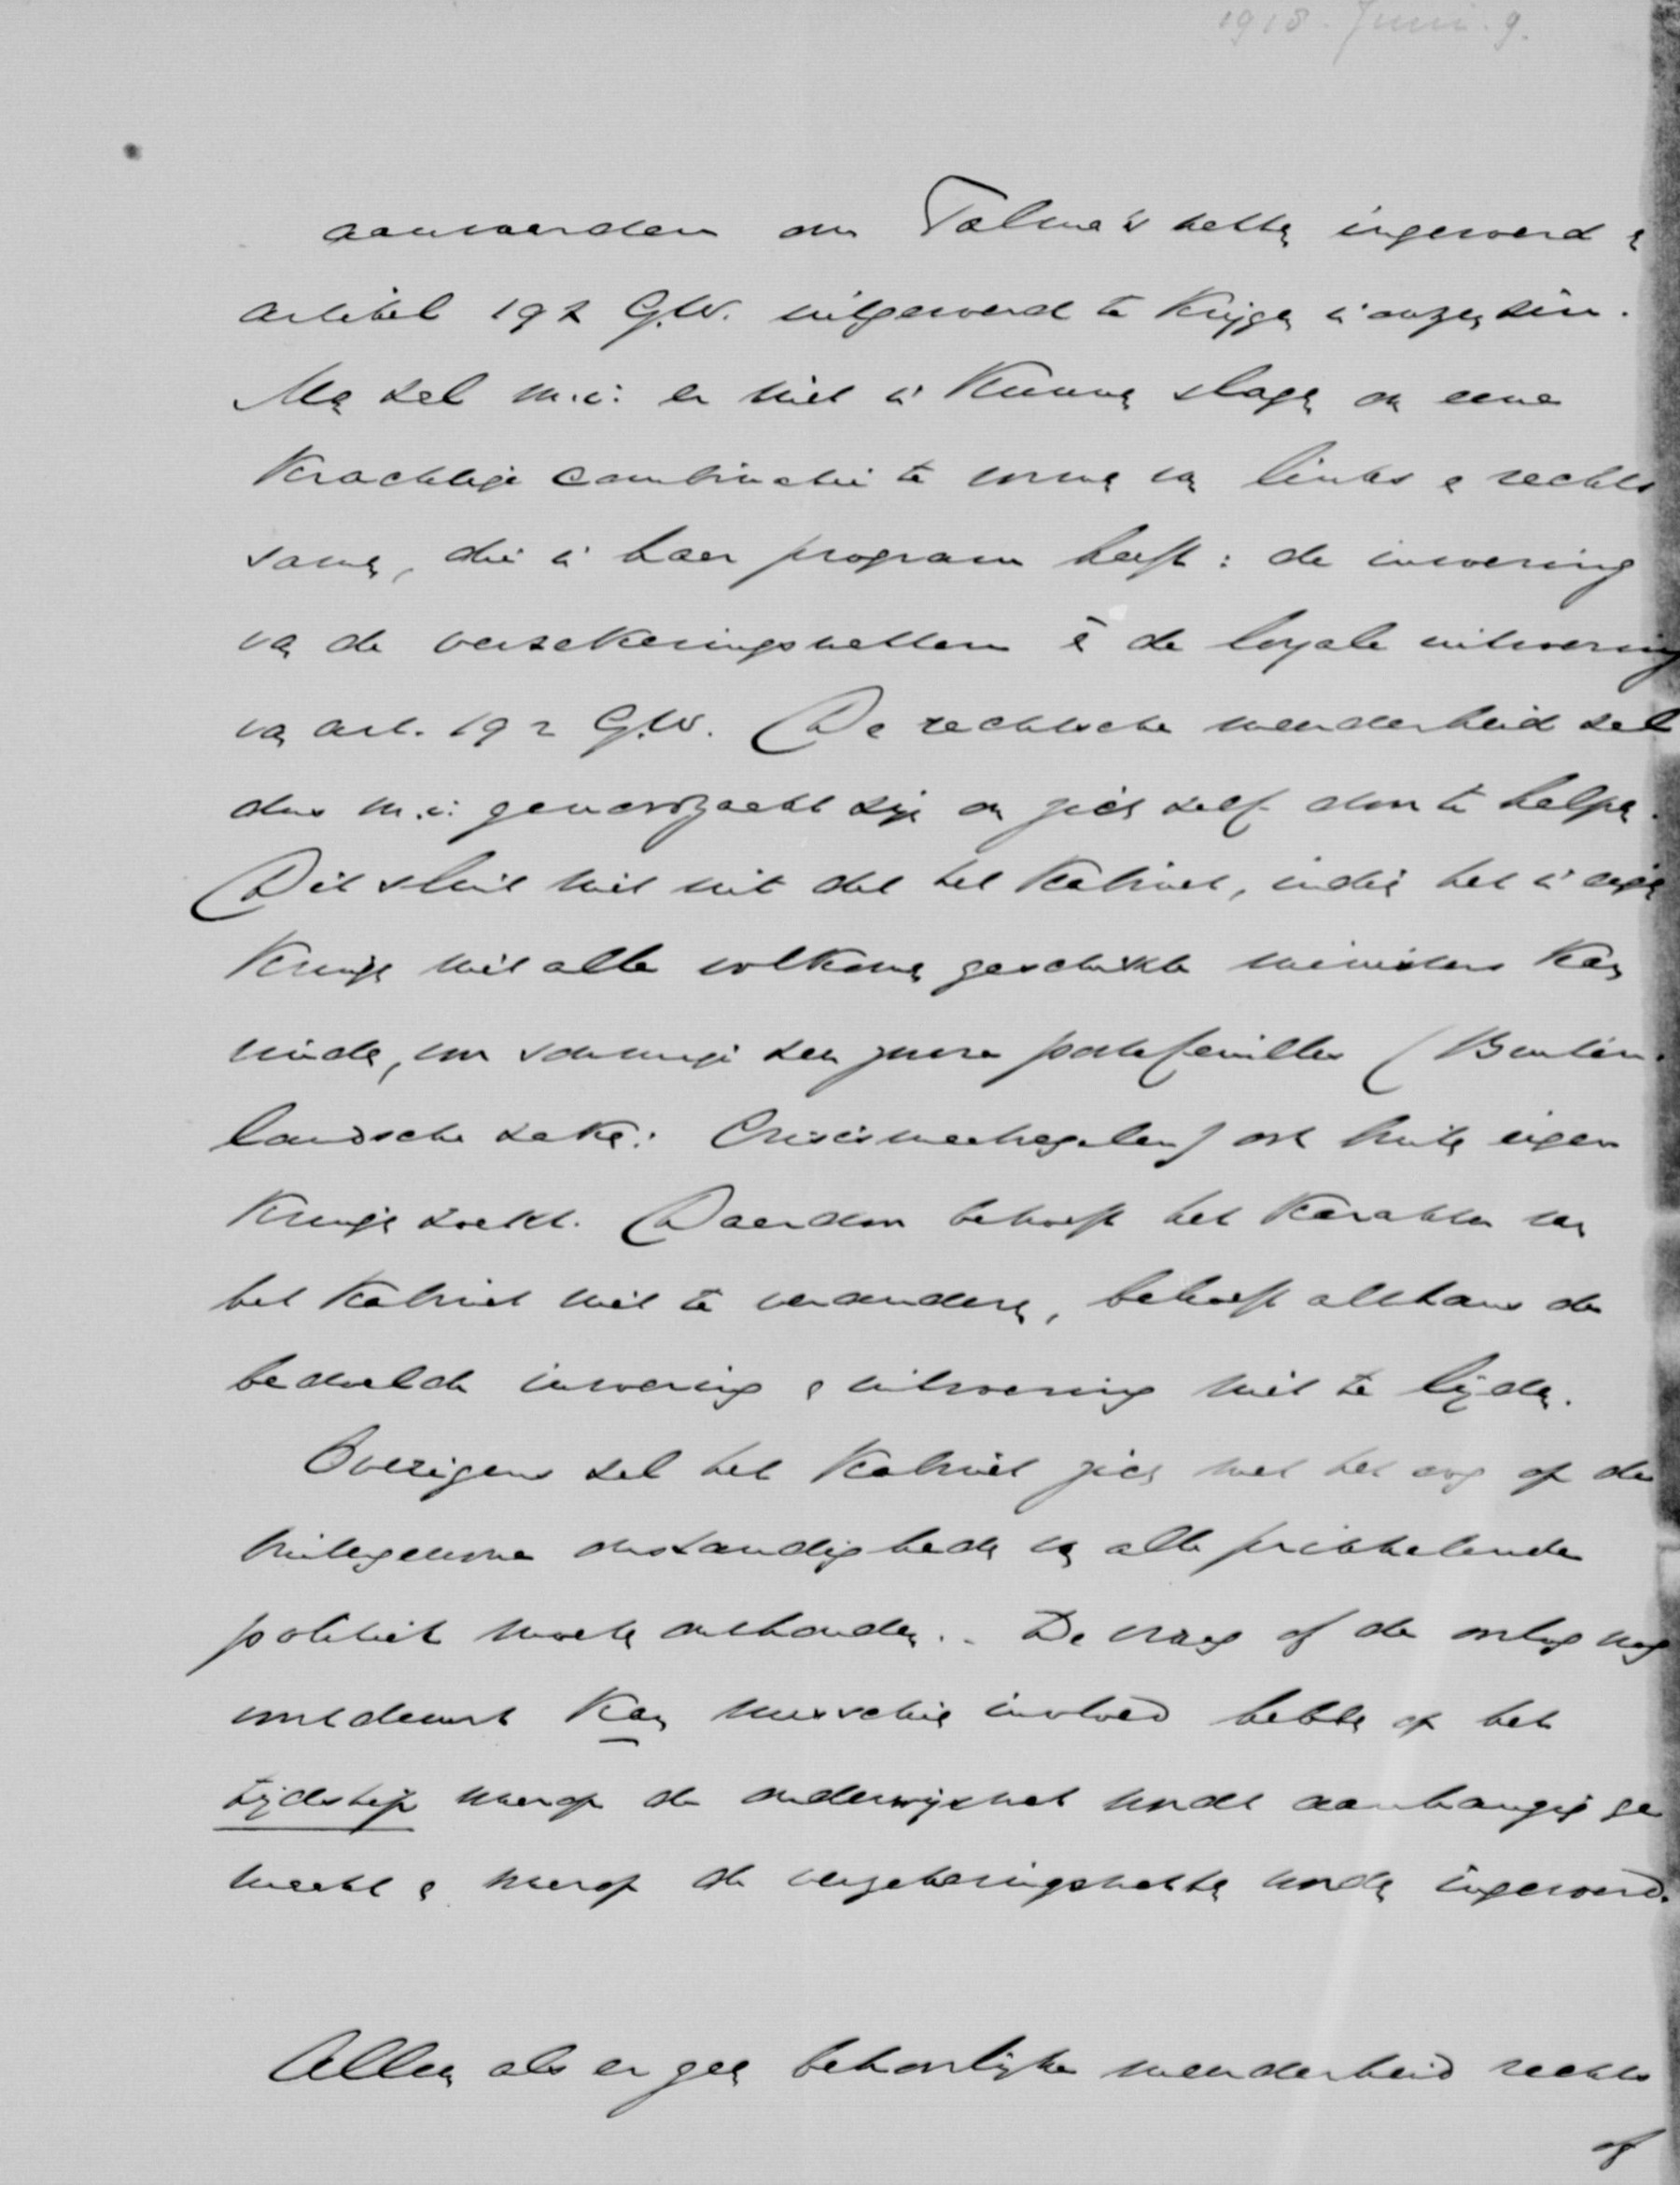 1918. Juni. 9.
aanvaarden om Talma's wetten ingevoerd en
artikel 192 G.W. uitgevoerd te krijgen in onzen zin.
Men zal m.i. er niet in kunnen slagen om eene
krachtige combinatie te vormen van links en rechts
samen, die in haar program heeft: de invoering
van de verzekeringswetten èn de loyale uitvoering
van art. 192 G.W. De rechtsche meerderheid zal
dus m.i. genoodzaakt zijn om zich zelf door te helpen.
Dit sluit niet uit dat het Kabinet, indien het in eigen
kringen niet alle volkomen geschikte ministers kan
vinden, voor sommige zeer zware portefeuilles (Buiten-
landsche zaken: Crisismaatregelen) ook buiten eigen
kringen zoekt. Daardoor behoeft het karakter van
het Kabinet niet te veranderen, behoeft althans de
bedoelde invoering en uitvoering niet te lijden.
Overigens zal het Kabinet zich met het oog op de
buitengewone omstandigheden van alle prikkelende
politiek moeten onthouden. De vraag of de oorlog nog
voortduurt kan misschien invloed hebben op het
tijdstip waarop de onderwijswet wordt aanhangig ge
maakt en waarop de verzekeringswetten worden ingevoerd.
Alleen als er geen behoorlijke meerderheid rechts
of